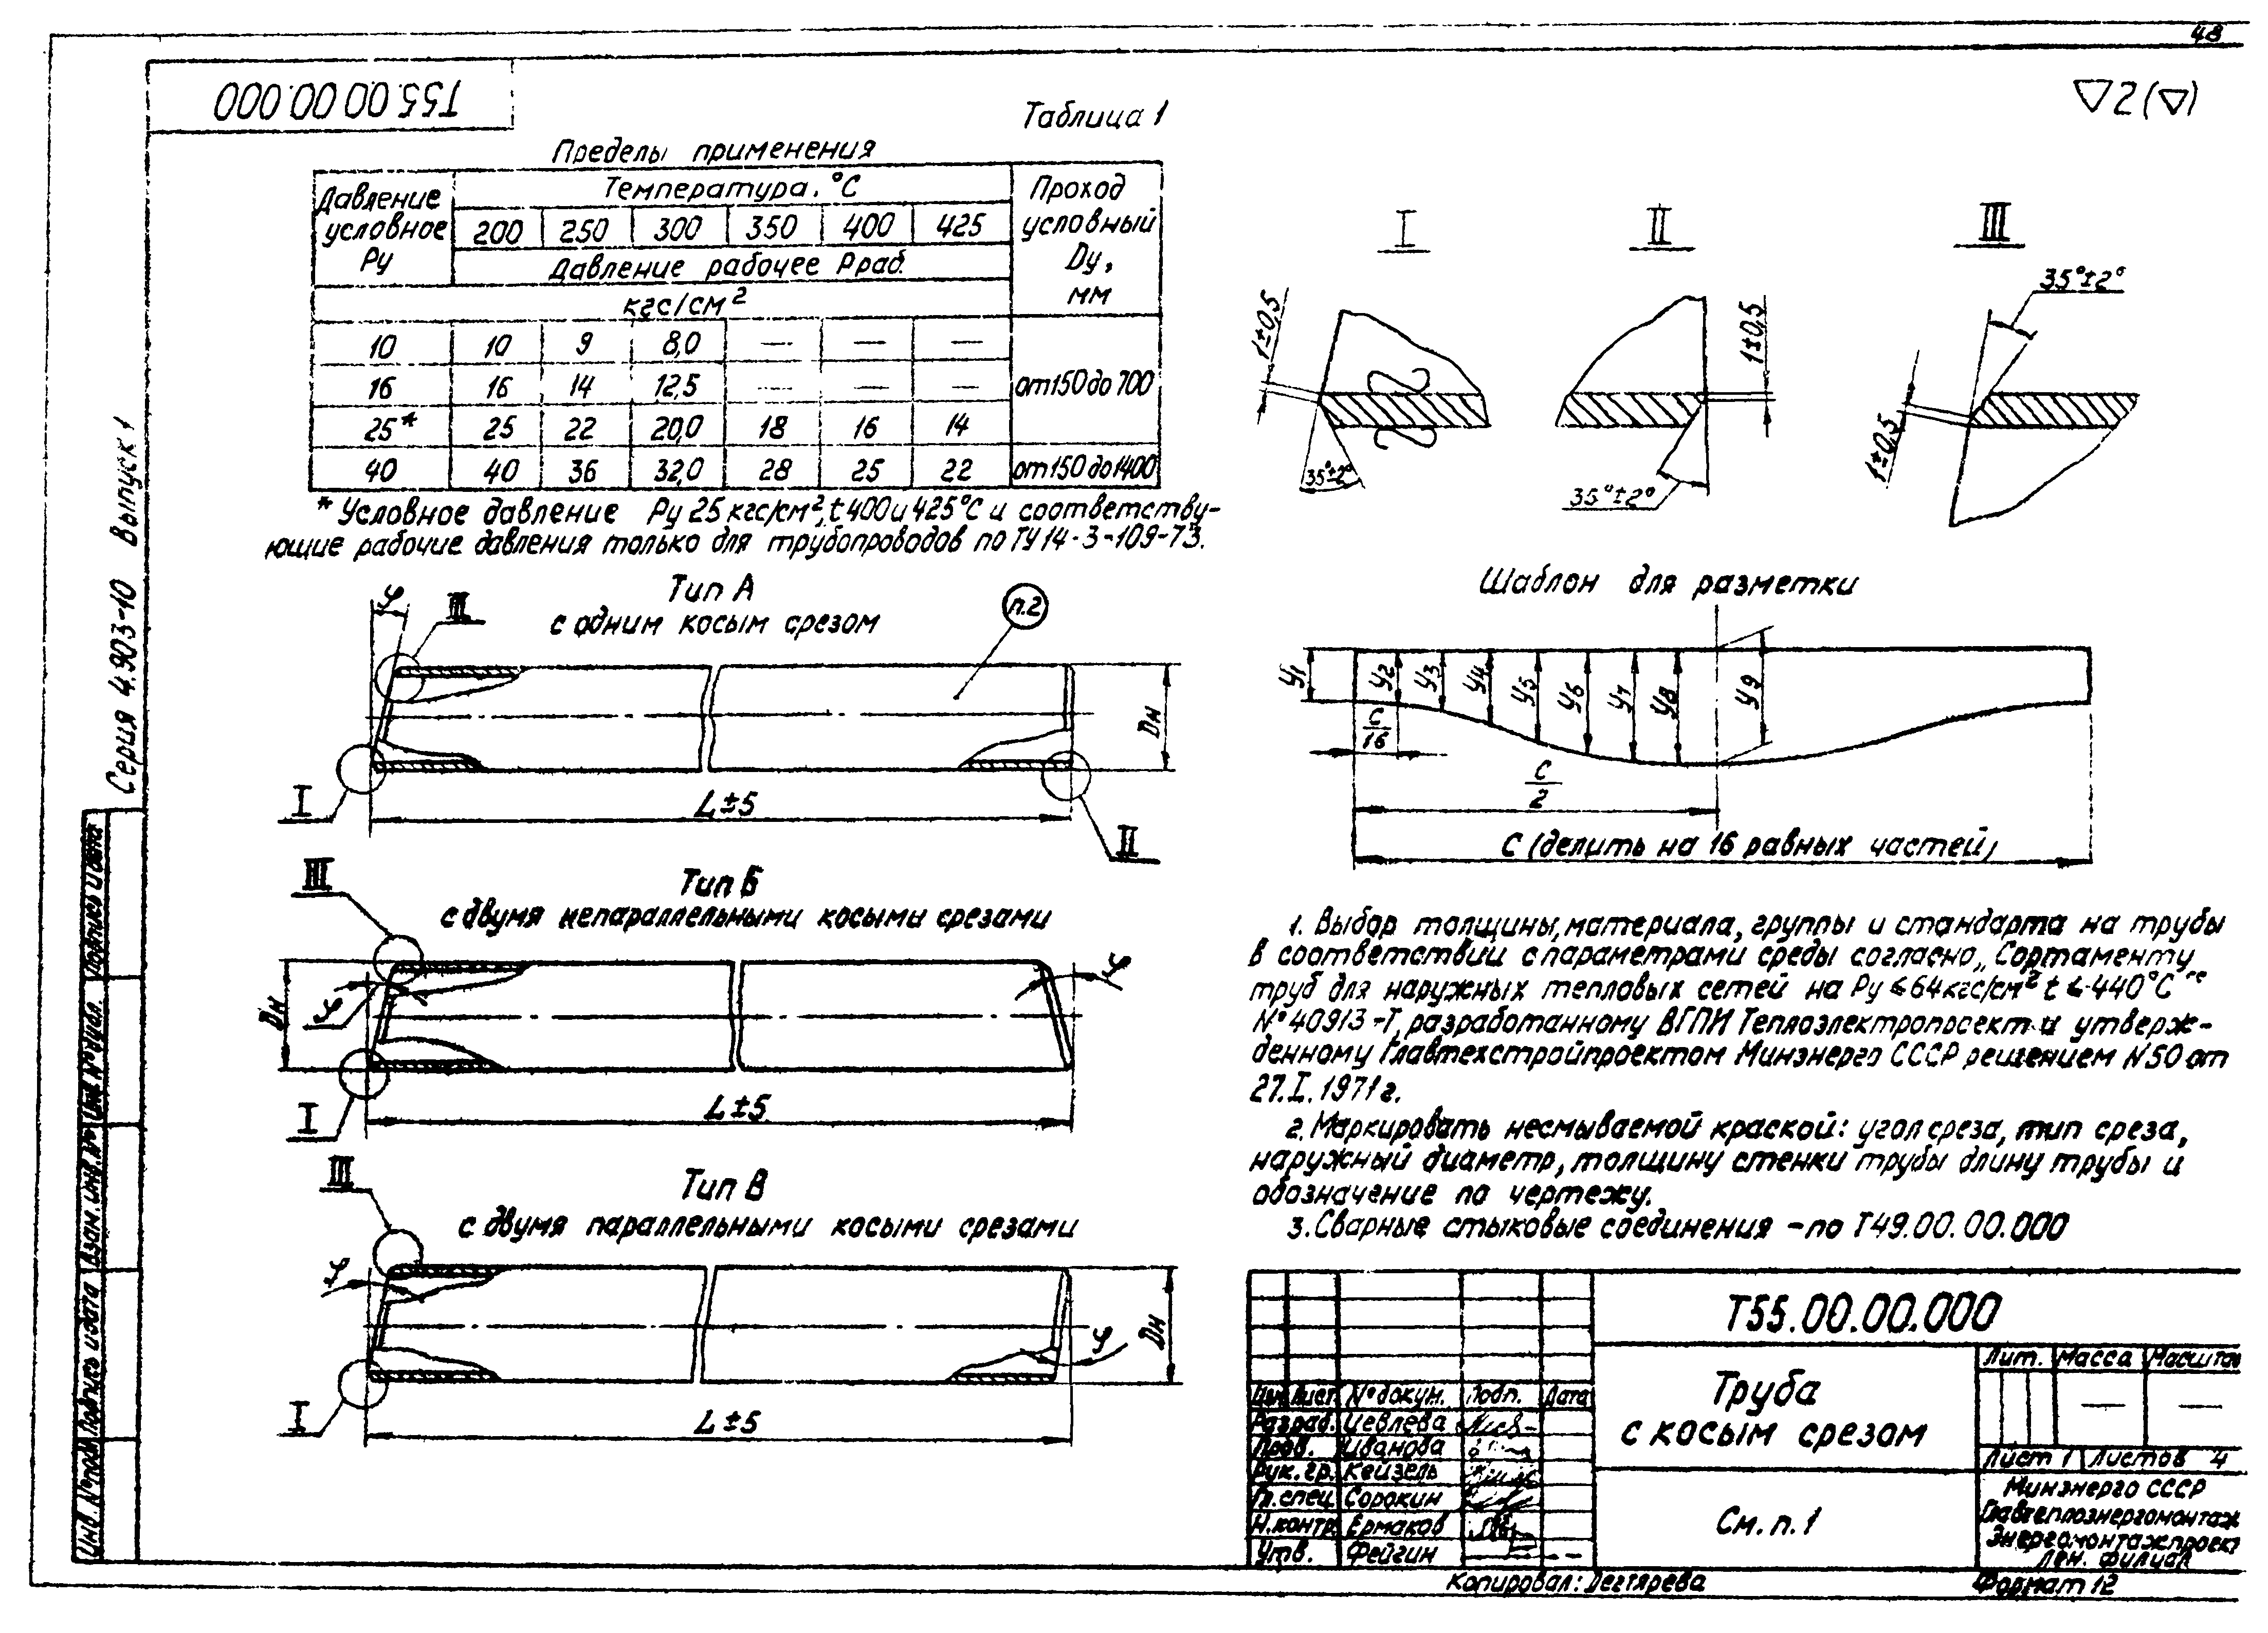 48
Т55.00.00.000
▽2(▽)
Таблица 1
Пределы применения
Давление условное Ру
Температура, °С
Проход условный Dу, мм
200 250 300 350 400 425
Давление рабочее Рраб.
кгс/см²
10 10 9 8,0 — — —
16 16 14 12,5 — — —
от 150 до 700
25* 25 22 20,0 18 16 14
40 40 36 32,0 28 25 22 от 150 до 1400
* Условное давление Ру 25 кгс/см², t 400 и 425°С и соответству-
ющие рабочие давления только для трубопроводов по ТУ 14-3-109-73.
Серия 4.903-10 Выпуск 1
Тип А
с одним косым срезом
φ
III
п.2
Dн
I
L±5
II
Тип Б
с двумя непараллельными косыми срезами
III
φ
φ
Dн
I
L±5
Тип В
с двумя параллельными косыми срезами
III
φ
φ
Dн
I
L±5
I
1±0,5
35°±2°
II
1±0,5
35°±2°
III
35°±2°
1±0,5
Шаблон для разметки
У1 У2 У3 У4 У5 У6 У7 У8 У9
С/16
С/2
С (делить на 16 равных частей)
1. Выбор толщины, материала, группы и стандарта на трубы
в соответствии с параметрами среды согласно „Сортаменту
труб для наружных тепловых сетей на Ру ≤ 64 кгс/см² t ≤ 440°С"
№ 40913-Т, разработанному ВГПИ Теплоэлектропроект и утверж-
денному Главтехстройпроектом Минэнерго СССР решением N50 от
27.I.1971г.
2. Маркировать несмываемой краской: угол среза, тип среза,
наружный диаметр, толщину стенки трубы длину трубы и
обозначение по чертежу.
3. Сварные стыковые соединения - по Т49.00.00.000
Т55.00.00.000
Труба
с косым срезом
Лит. Масса Масштаб
— —
Лист 1 Листов 4
См. п. 1
Минэнерго СССР
Главтеплоэнергомонтаж
Энергомонтажпроект
Лен. филиал
Изм. Лист № докум. Подп. Дата
Разраб. Иевлева
Пров. Иванова
Рук. гр. Кейзель
Гл. спец. Сорокин
Н. контр. Ермаков
Утв. Фейгин
Копировал: Дегтярева
Формат 12
Инв. № подл. Подпись и дата Взам. инв. № Инв. № дубл. Подпись и дата